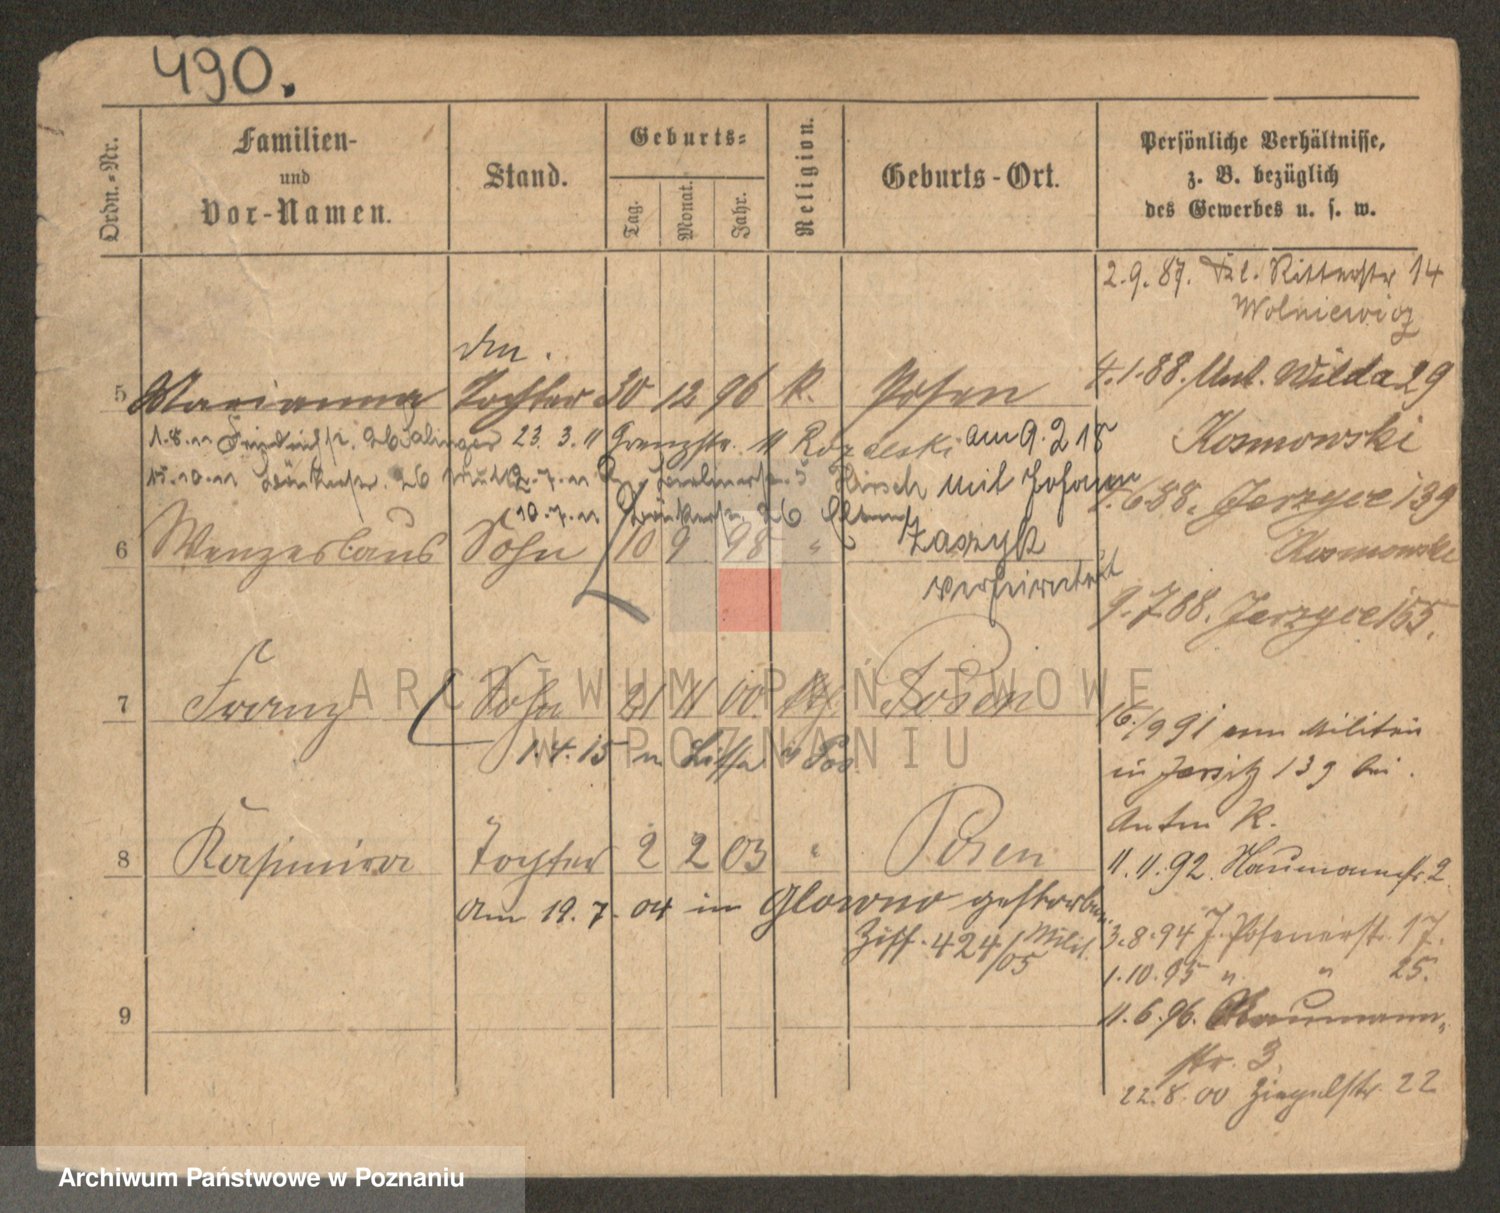 490.
Ordn.-Nr.
Familien-
und
Vor-Namen.
Stand.
Geburts-
Tag.
Monat.
Jahr.
Religion.
Geburts-Ort.
Persönliche Verhältnisse,
z. B. bezüglich
des Gewerbes u. s. w.
2.9.87. Ritterstr 14
Wolniewicz
5 Marianna Tochter 30 12 96 K. Posen
4.1.88. Unt. Wilda 29
23. 3. 11 Grenzstr. 11 am 9. 2 18
Kosmowski
15.10.11 26 2.7.11 5 Hirsch mit Johann
6.88. Jerzyce 139
10.7.11 26
Kosmowski
6 Wenzeslaus Sohn 10 9 98 " Zaszyk
verheirathet
9.7.88. Jerzyce 155.
7 Franz Sohn 21 11 00. Posen
1.4.15 n Lissa i/Pos.
16/9 91 vom Militär
in Jersitz 139 bei
Anton K.
8 Kasimira Tochter 2 2 03 " Posen
11.11.92. Naumannstr. 2.
Am 19.7.04 in Glowno gestorben
Ziff. 424/05 Milit.
3.8.94 J. Posenerstr. 17.
1.10.95 " " 25.
9
11.6.96. Naumann-
str. 3.
22.8.00 Ziegelstr. 22
ARCHIWUM PAŃSTWOWE
W POZNANIU
Archiwum Państwowe w Poznaniu